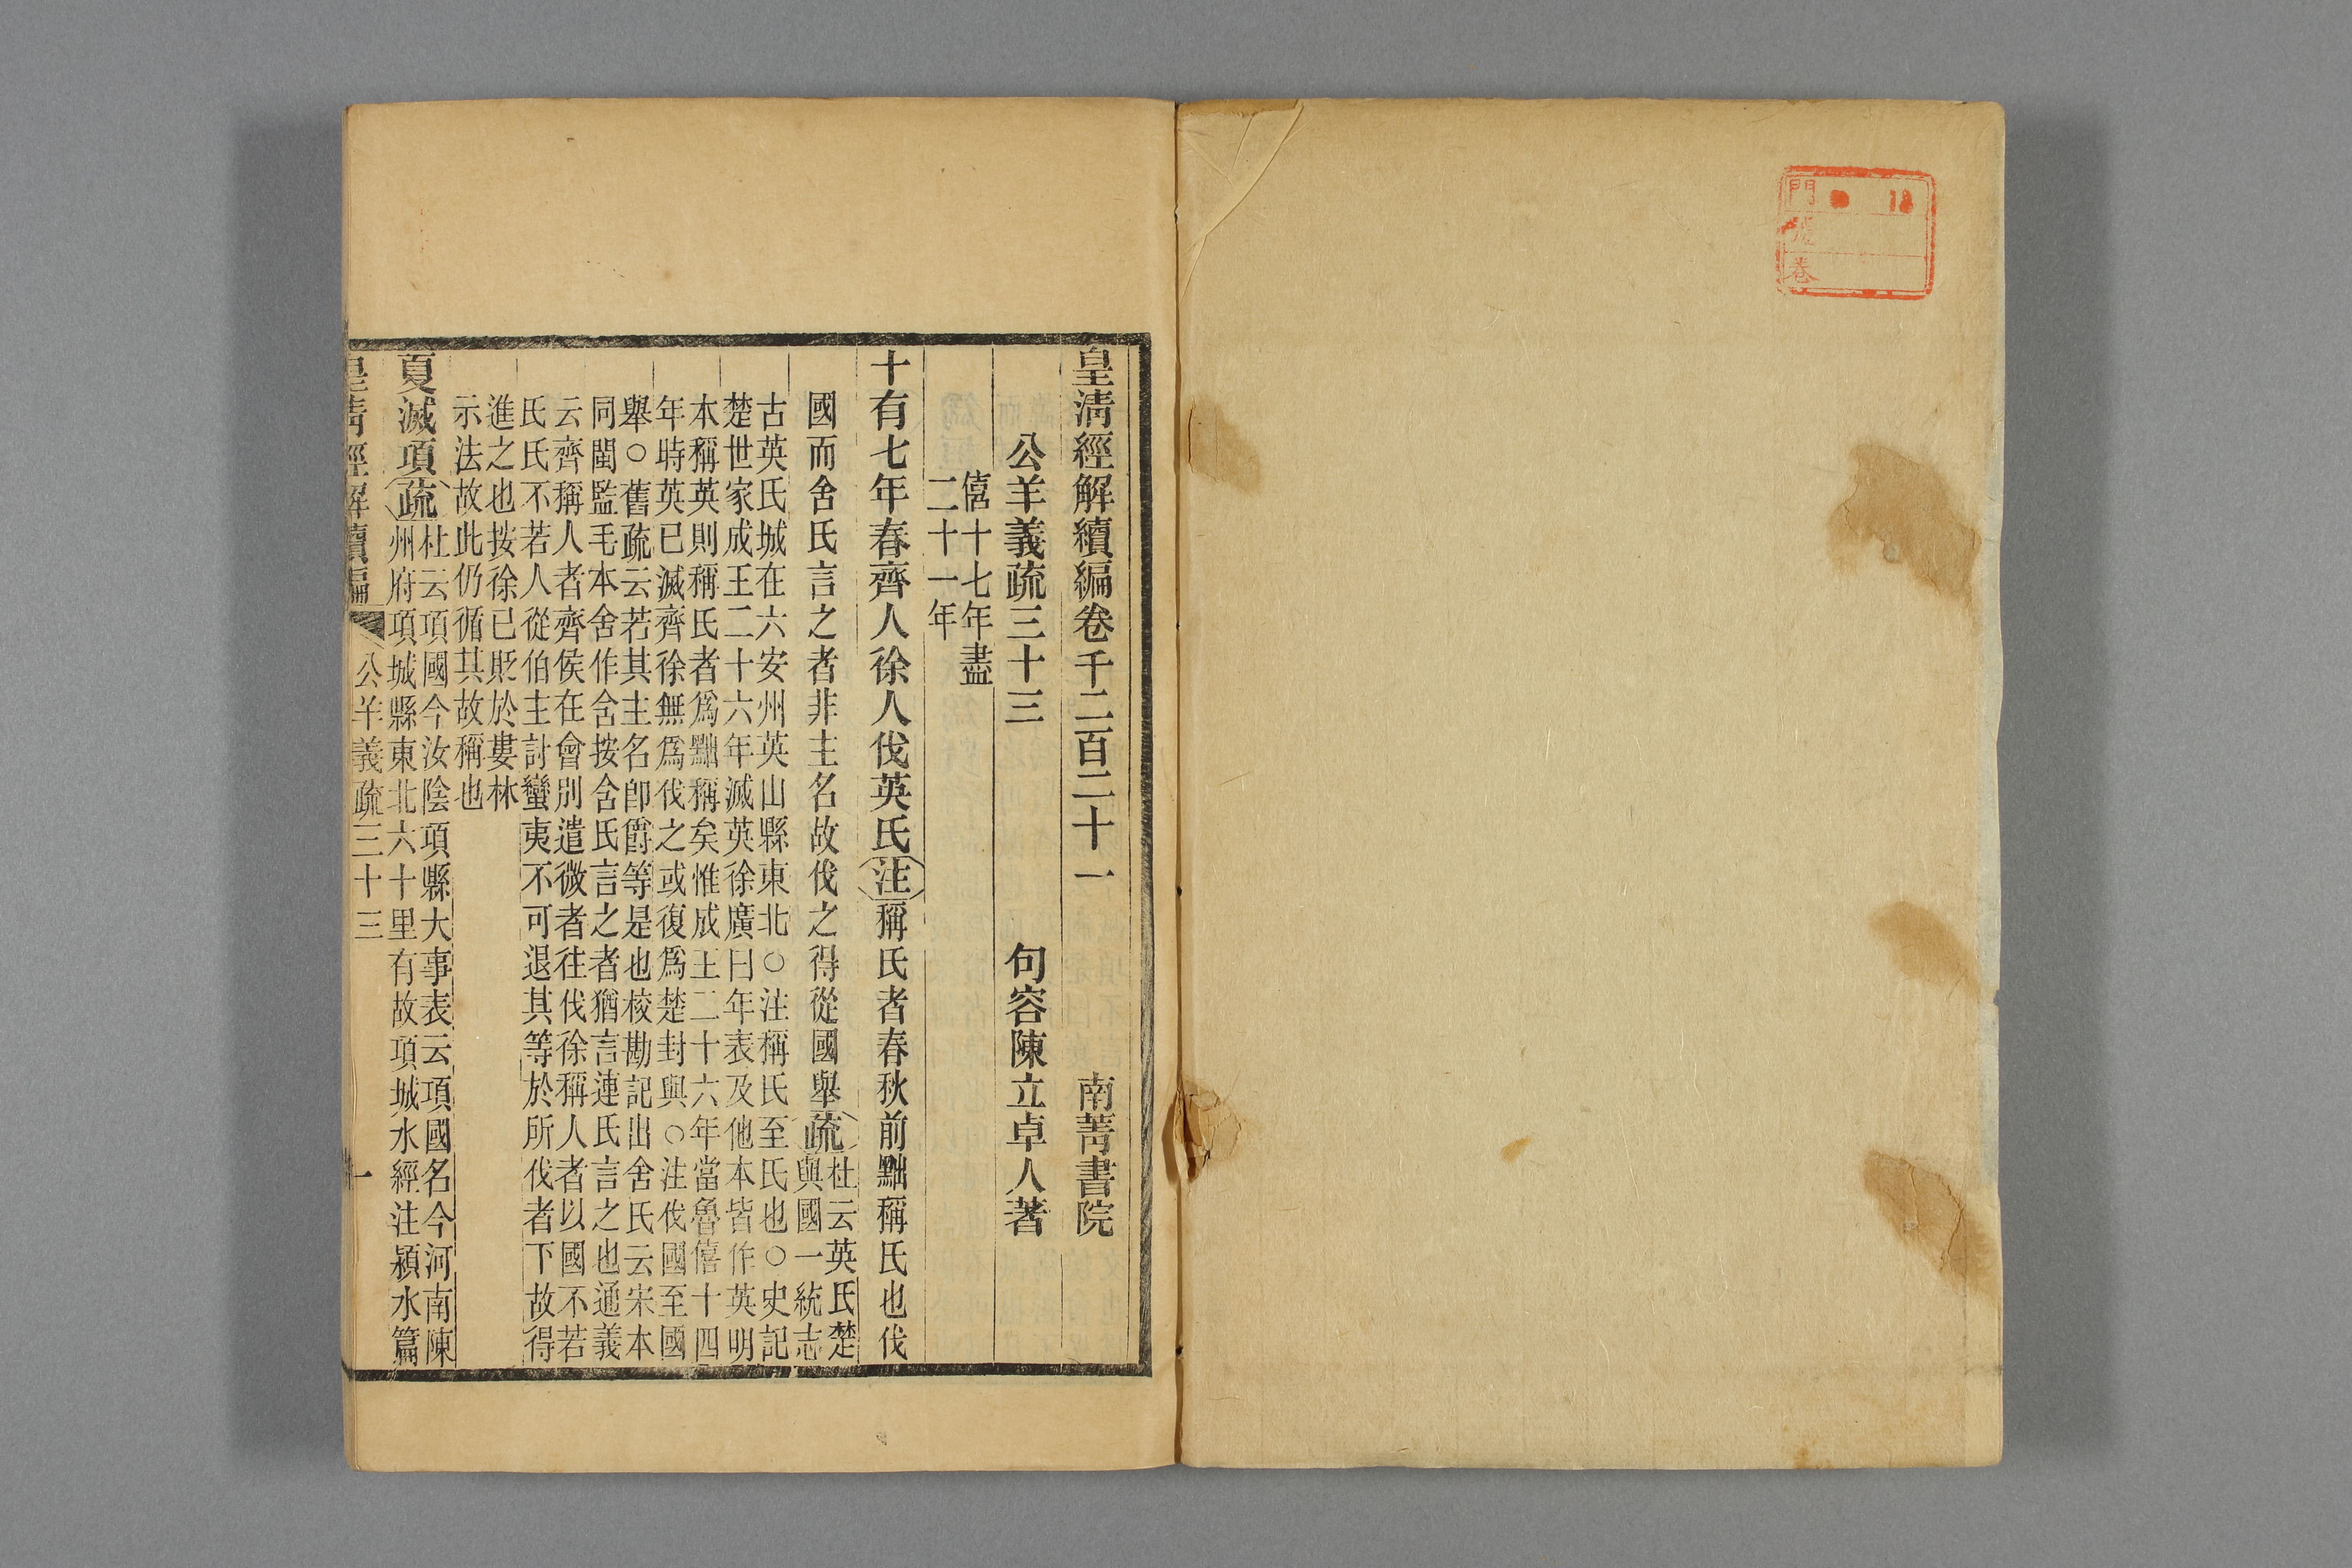 門
卷
皇清經解續編卷千二百二十一 南菁書院
公羊義疏三十三 句容陳立卓人著
僖十七年盡
二十一年
十有七年春齊人徐人伐英氏注稱氏者春秋前黜稱氏也伐
國而舍氏言之者非主名故伐之得從國舉疏
杜云英氏楚
與國一統志
古英氏城在六安州英山縣東北○注稱氏至氏也○史記
楚世家成王二十六年滅英徐廣曰年表及他本皆作英明
本稱英則稱氏者爲黜稱矣惟成王二十六年當魯僖十四
年時英已滅齊徐無爲伐之或復爲楚封與○注伐國至國
舉○舊疏云若其主名卽爵等是也校勘記出舍氏云宋本
同閩監毛本舍作舎按舍氏言之者猶言連氏言之也通義
云齊稱人者齊侯在會別遣微者往伐徐稱人者以國不若
氏氏不若人從伯主討蠻夷不可退其等於所伐者下故得
進之也按徐已貶於婁林
示法故此仍循其故稱也
夏滅項疏
杜云項國今汝陰項縣大事表云項國名今河南陳
州府項城縣東北六十里有故項城水經注潁水篇
皇清經解續編 公羊義疏三十三 一